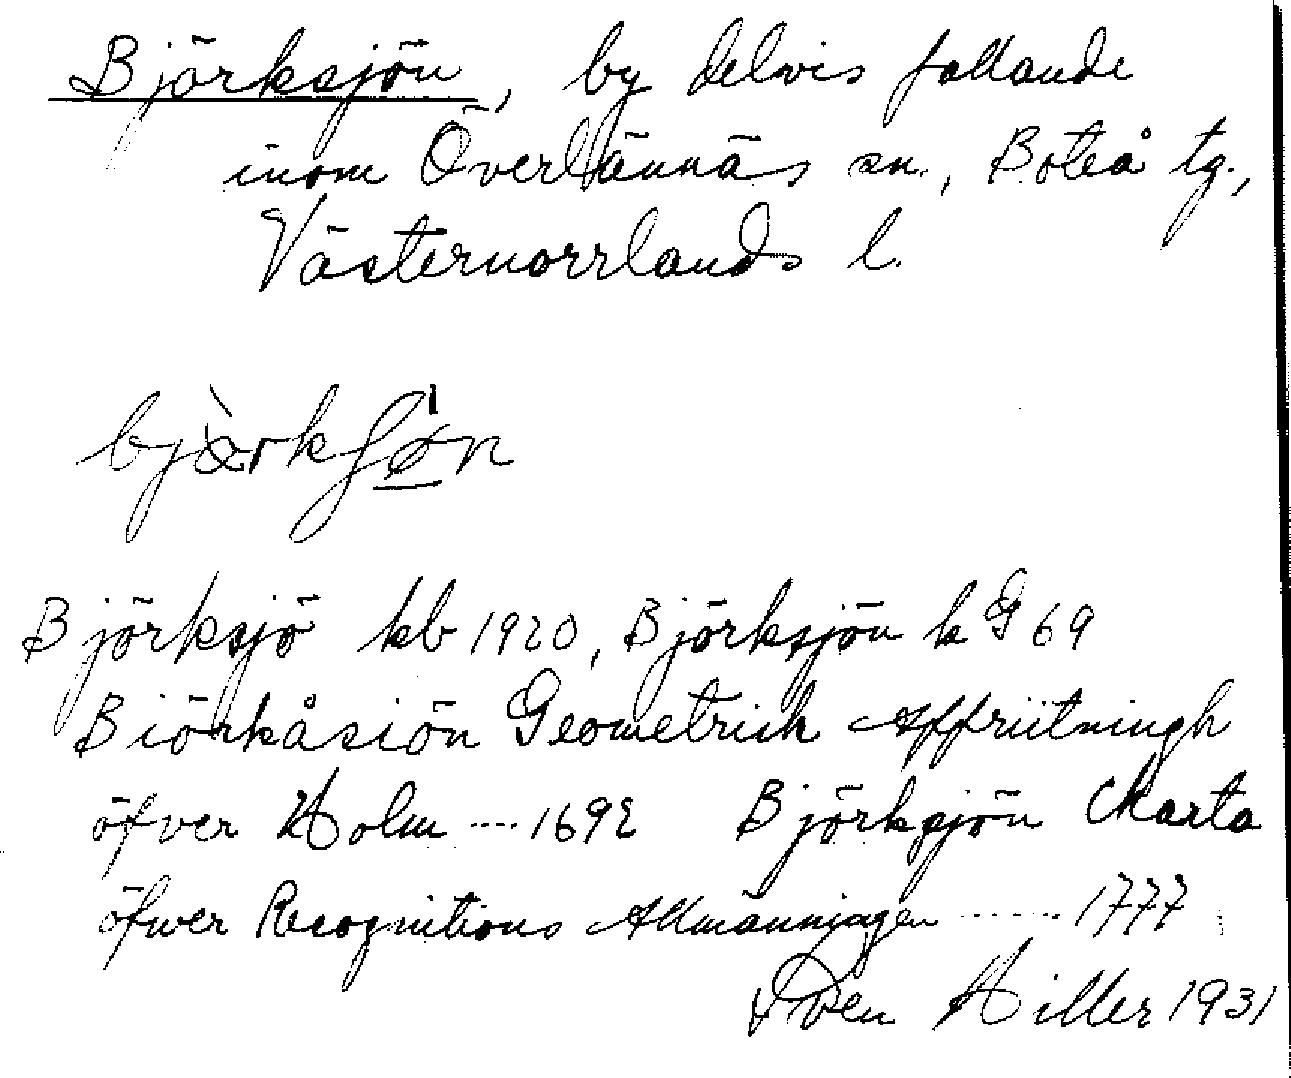 Björksjön, by delvis fallande
inom Överlännäs sn., Boteå tg.,
Västernorrlands l.
bjœ̀rkʃø̀n
Björksjö kb 1920, Björksjön k G 69
Biörkåsiön Geometrisk Affriitningh
öfver Holm .... 1692 Björksjön Charta
öfwer Recognitions Allmänningen ....... 1777
Sven Hiller 1931